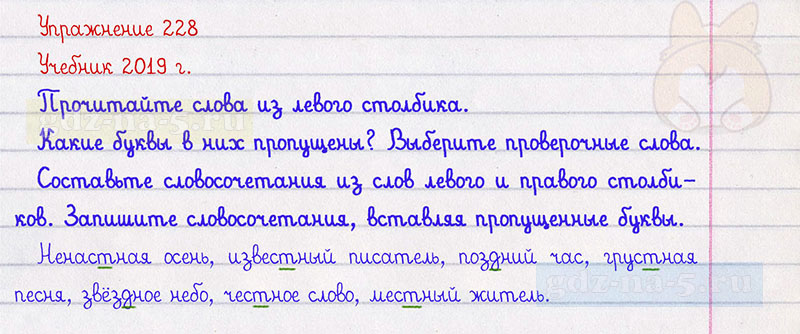 Упражнение 228
Учебник 2019 г.
Прочитайте слова из левого столбика.
Какие буквы в них пропущены? Выберите проверочные слова.
Составьте словосочетания из слов левого и правого столби-
ков. Запишите словосочетания, вставляя пропущенные буквы.
Ненастная осень, известный писатель, поздний час, грустная
песня, звёздное небо, честное слово, местный житель.
gdz-na-5.ru
gdz-na-5.ru